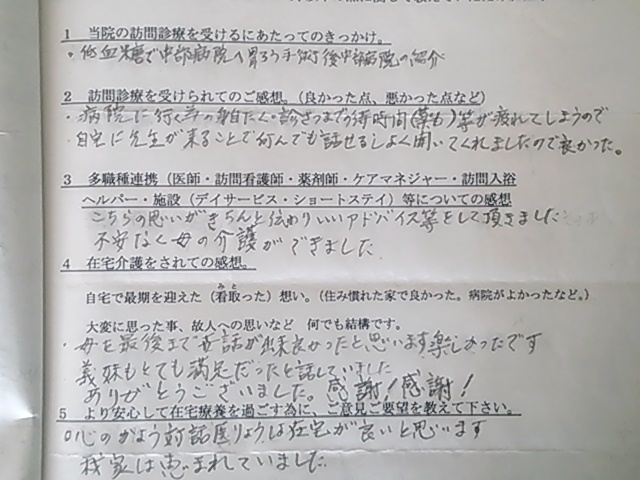 1 当院の訪問診療を受けるにあたってのきっかけ。
・低血糖で中部病院へ胃ろう手術後中部病院の紹介
2 訪問診療を受けられてのご感想。（良かった点、悪かった点など）
・病院に行く為の身自たく・診さつまでの待時間（薬も）等が疲れてしまうので
・自宅に先生が来ることで何んでも話せるしよく聞いてくれましたので良かった。
3 多職種連携（医師・訪問看護師・薬剤師・ケアマネジャー・訪問入浴
ヘルパー・施設（デイサービス・ショートステイ）等についての感想
こちらの思いがきちんと伝わりいいアドバイス等をして頂きました
不安なく母の介護ができました
4 在宅介護をされての感想。
自宅で最期を迎えた（看取った）想い。（住み慣れた家で良かった。病院がよかったなど。）
大変に思った事、故人への思いなど 何でも結構です。
・母を最後まで世話が出来良かったと思います楽しかったです
義妹もとても満足だったと話していました
ありがとうございました。感謝！感謝！
5 より安心して在宅療養を過ごす為に、ご意見ご要望を教えて下さい。
心の 対話 りょうは在宅が良いと思います
我家は恵まれていました